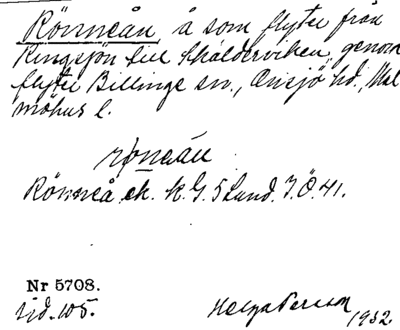 Rönneån, å som flyter från
Ringsjön till Skälderviken, genom
flyter Billinge sn., Onsjö hd., Mal
möhus l.
rönəåu
Rönneå, ek. K. G. 5 Lund. I. Ö. 41.
Nr 5708.
sid. 105.
Helga Persson
1932.